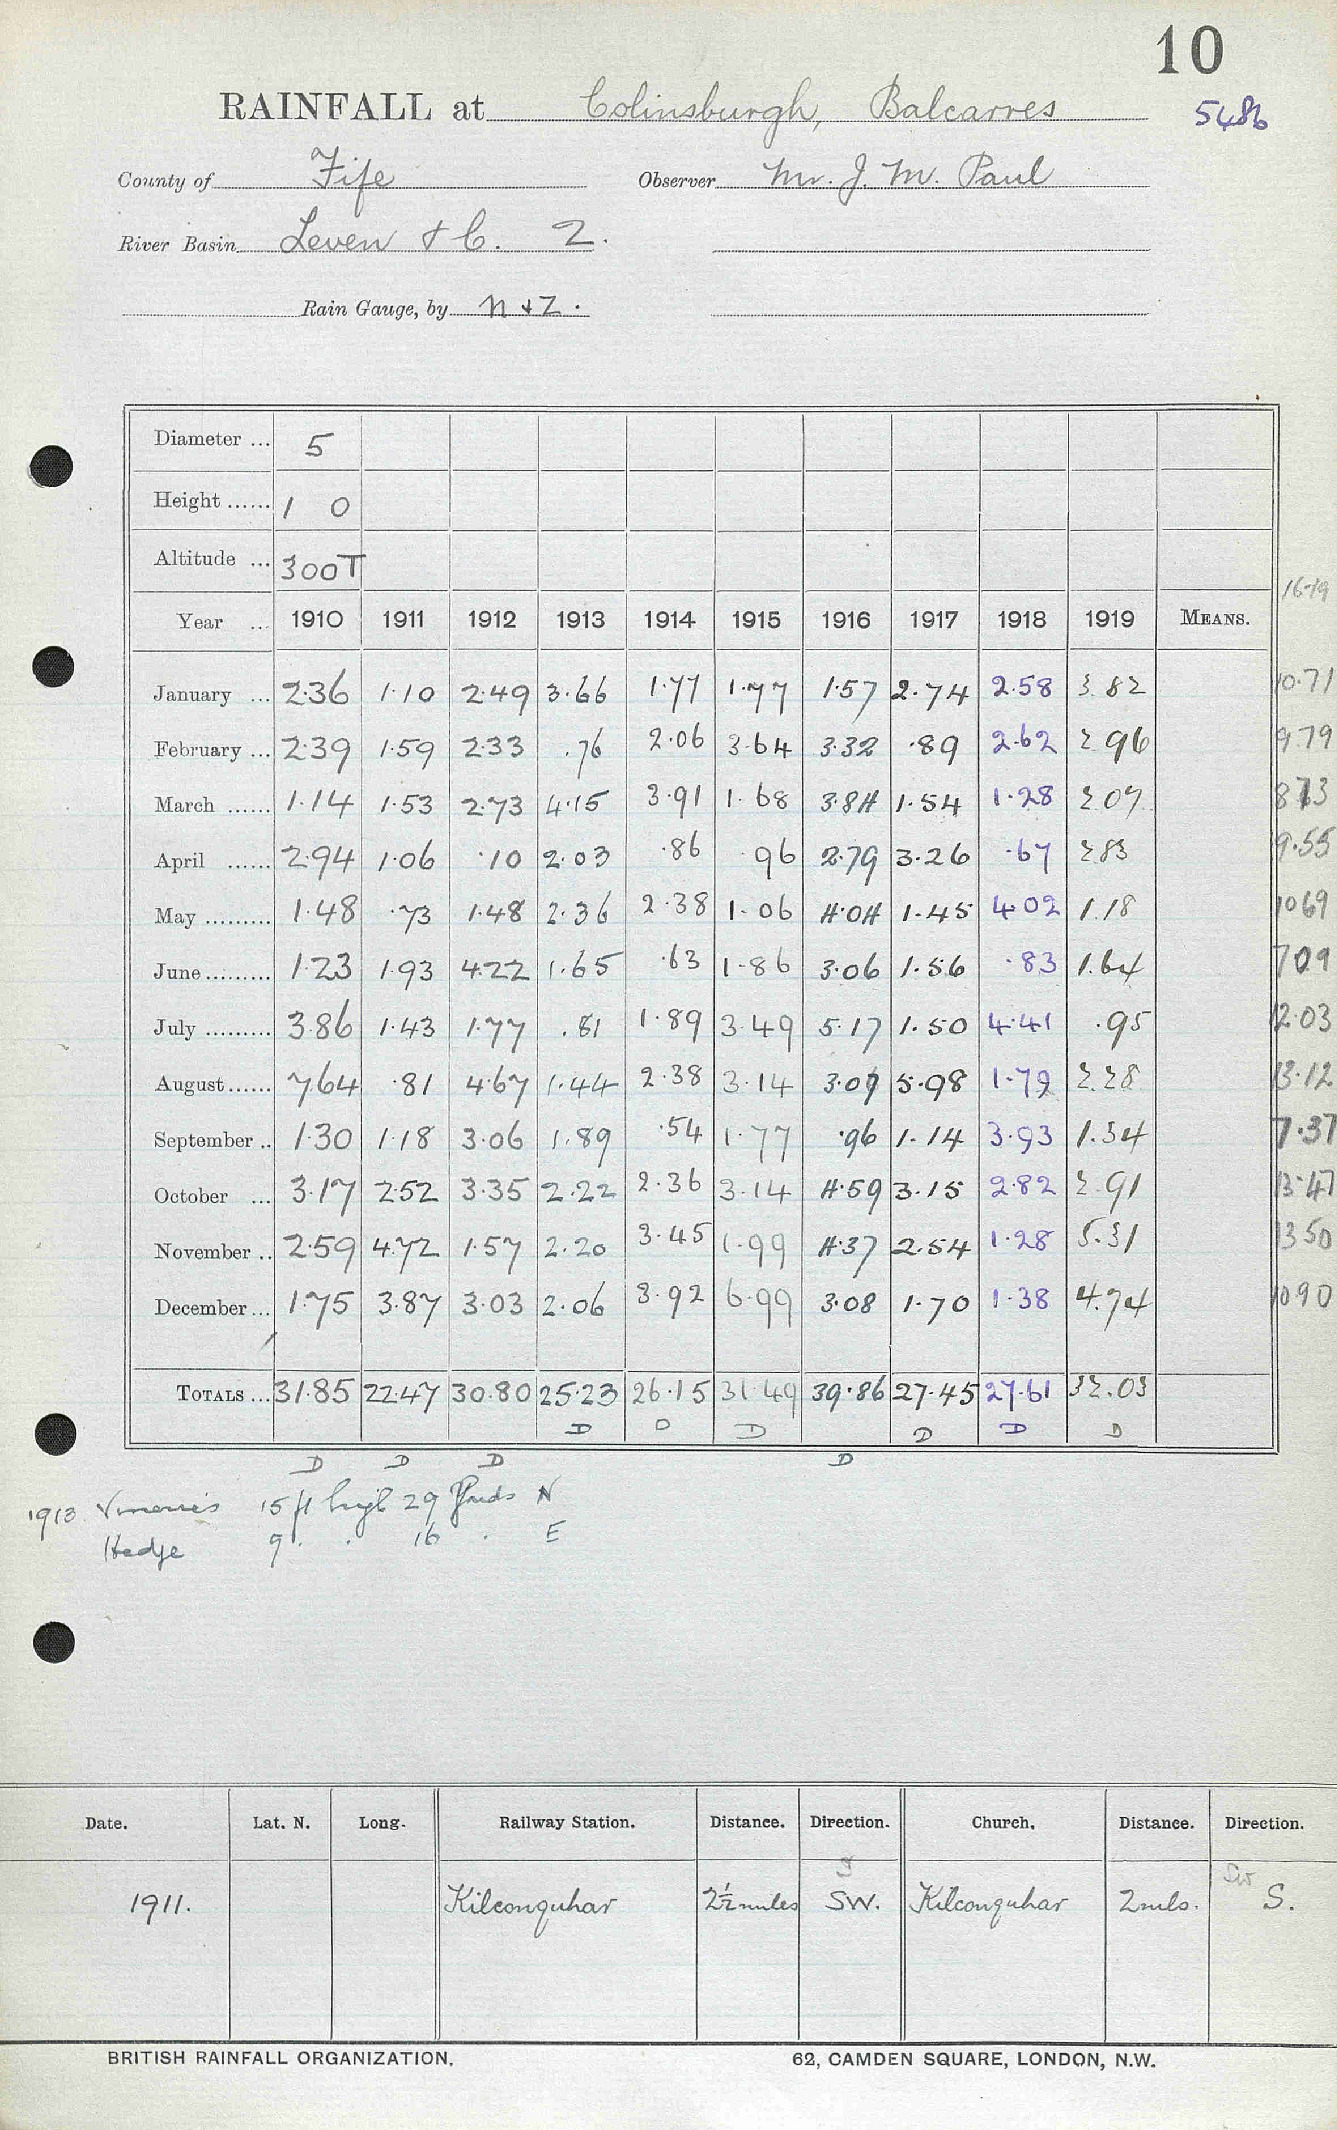 10
RAINFALL at Colinsburgh, Balcarres 5486
County of Fife Observer Mr. J. M. Paul
River Basin Leven & C. 2.
Rain Gauge, by N & Z.
Diameter ... 5
Height ...... 1 0
Altitude ... 300T
16-19
Year ... 1910 1911 1912 1913 1914 1915 1916 1917 1918 1919 MEANS.
January ... 2.36 1.10 2.49 3.66 1.77 1.77 1.57 2.74 2.58 3.82 10.71
February ... 2.39 1.59 2.33 .76 2.06 3.64 3.32 .89 2.62 2.96 9.79
March ...... 1.14 1.53 2.73 4.15 3.91 1.68 3.84 1.54 1.28 2.07 8.73
April ...... 2.94 1.06 .10 2.03 .86 .96 2.79 3.26 .67 2.83 9.55
May ......... 1.48 .73 1.48 2.36 2.38 1.06 4.04 1.45 4.02 1.18 10.69
June ......... 1.23 1.93 4.22 1.65 .63 1.86 3.06 1.56 .83 1.64 7.09
July ......... 3.86 1.43 1.77 .81 1.89 3.49 5.17 1.50 4.41 .95 12.03
August ...... 7.64 .81 4.67 1.44 2.38 3.14 3.07 5.98 1.79 2.28 13.12
September .. 1.30 1.18 3.06 1.89 .54 1.77 .96 1.14 3.93 1.34 7.37
October ... 3.17 2.52 3.35 2.22 2.36 3.14 4.59 3.15 2.82 2.91 13.47
November .. 2.59 4.72 1.57 2.20 3.45 1.99 4.37 2.54 1.28 5.31 13.50
December ... 1.75 3.87 3.03 2.06 3.92 6.99 3.08 1.70 1.38 4.74 10.90
TOTALS ... 31.85 22.47 30.80 25.23 26.15 31.49 39.86 27.45 27.61 32.03
D D D D D D
D D D D
1913 Vineries 15 ft high 29 yards N
Hedge 9 . . 16 . E
Date. Lat. N. Long. Railway Station. Distance. Direction. Church. Distance. Direction.
S SW
1911. Kilconquhar 2½ miles SW. Kilconquhar 2 mls. S.
BRITISH RAINFALL ORGANIZATION. 62, CAMDEN SQUARE, LONDON, N.W.